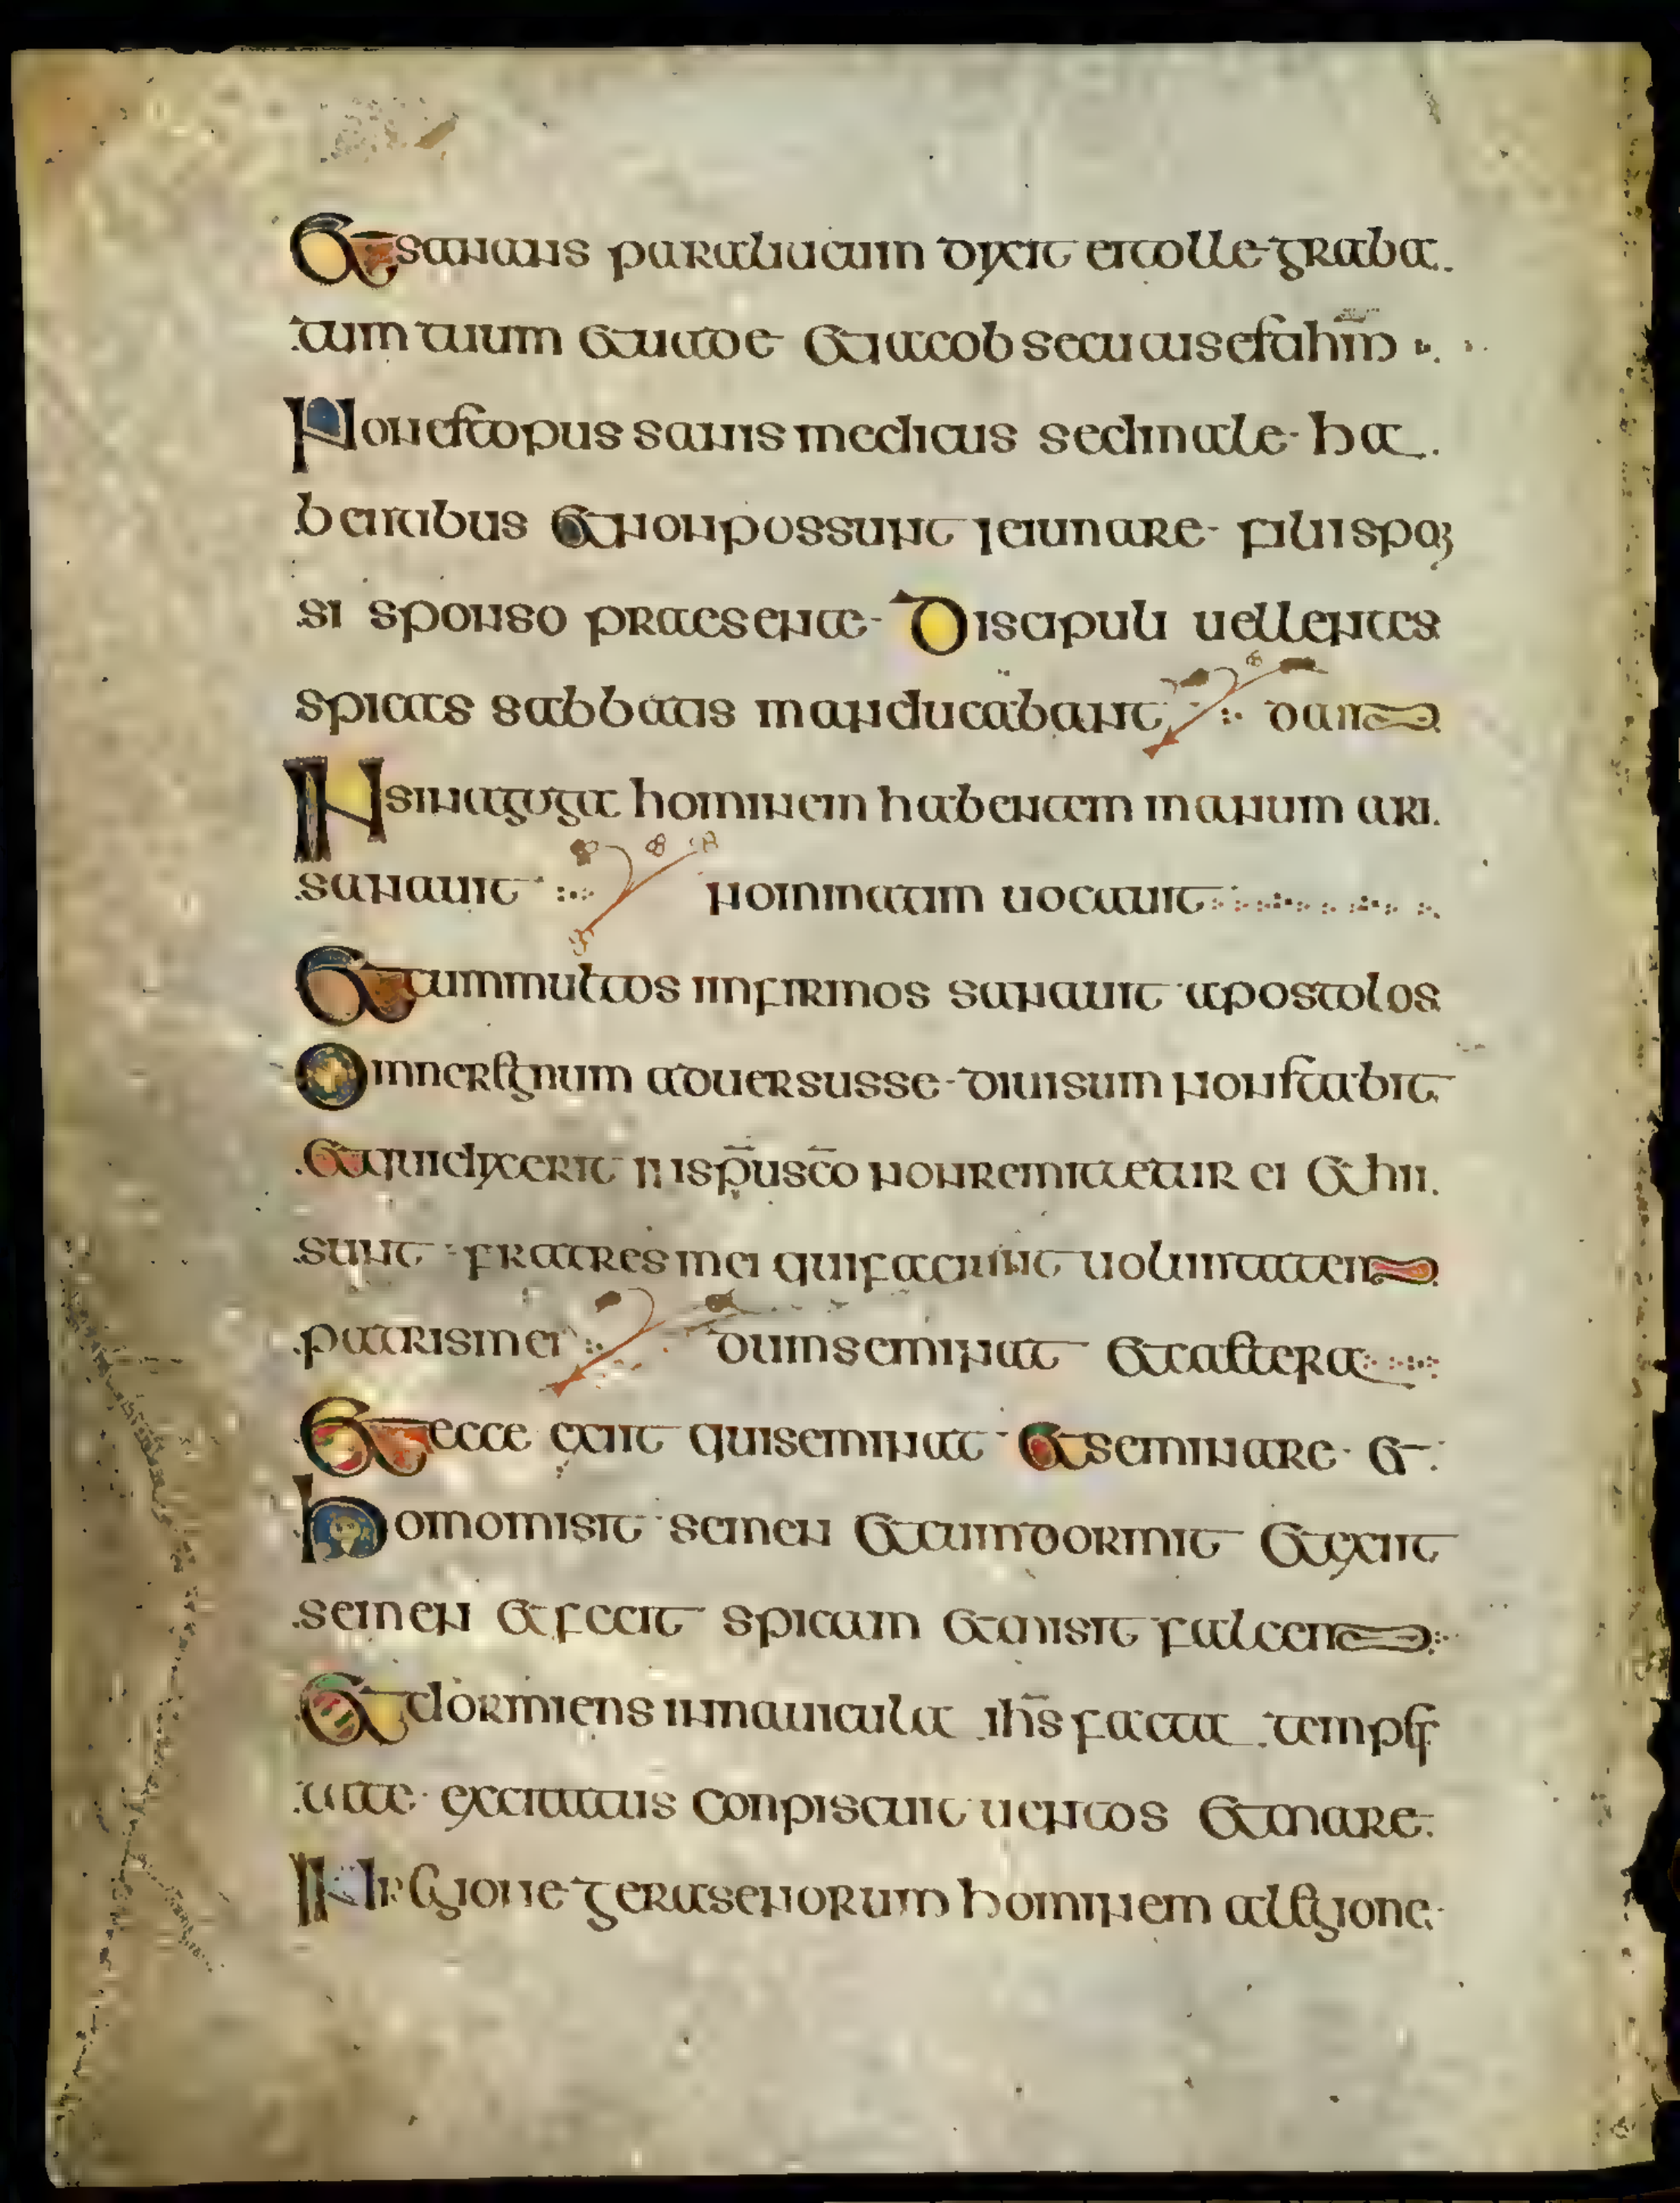 Et sanans paraliticum dixit ei tolle graba
tum tuum et uade et iacob secutus est ahm̅
Non est opus sanis medicus sed male ha
bentibus et non possunt ieiunare filii spon
si sponso praesente Discipuli uellentes
spicas sabbatis manducabant dann
In sinagoga hominem habentem manum ari
sanauit nominatim uocauit
Et cum multos infirmos sanauit apostolos
Omne regnum aduersus se diuisum non stabit
et qui dixerit in isp̅u sc̅o non remittetur ei et hii
sunt fratres mei qui faciunt uoluntatem
patris mei dum seminat et castera
Et ecce exiit qui seminat et seminare et
homo misit semen et cum dormit et exiit
semen et fecit spicam et misit falcem
Et dormiens in nauicula ih̅s facta tempes
tate excitatus conpiscuit uentos et mare
In regione gerasenorum hominem a legione